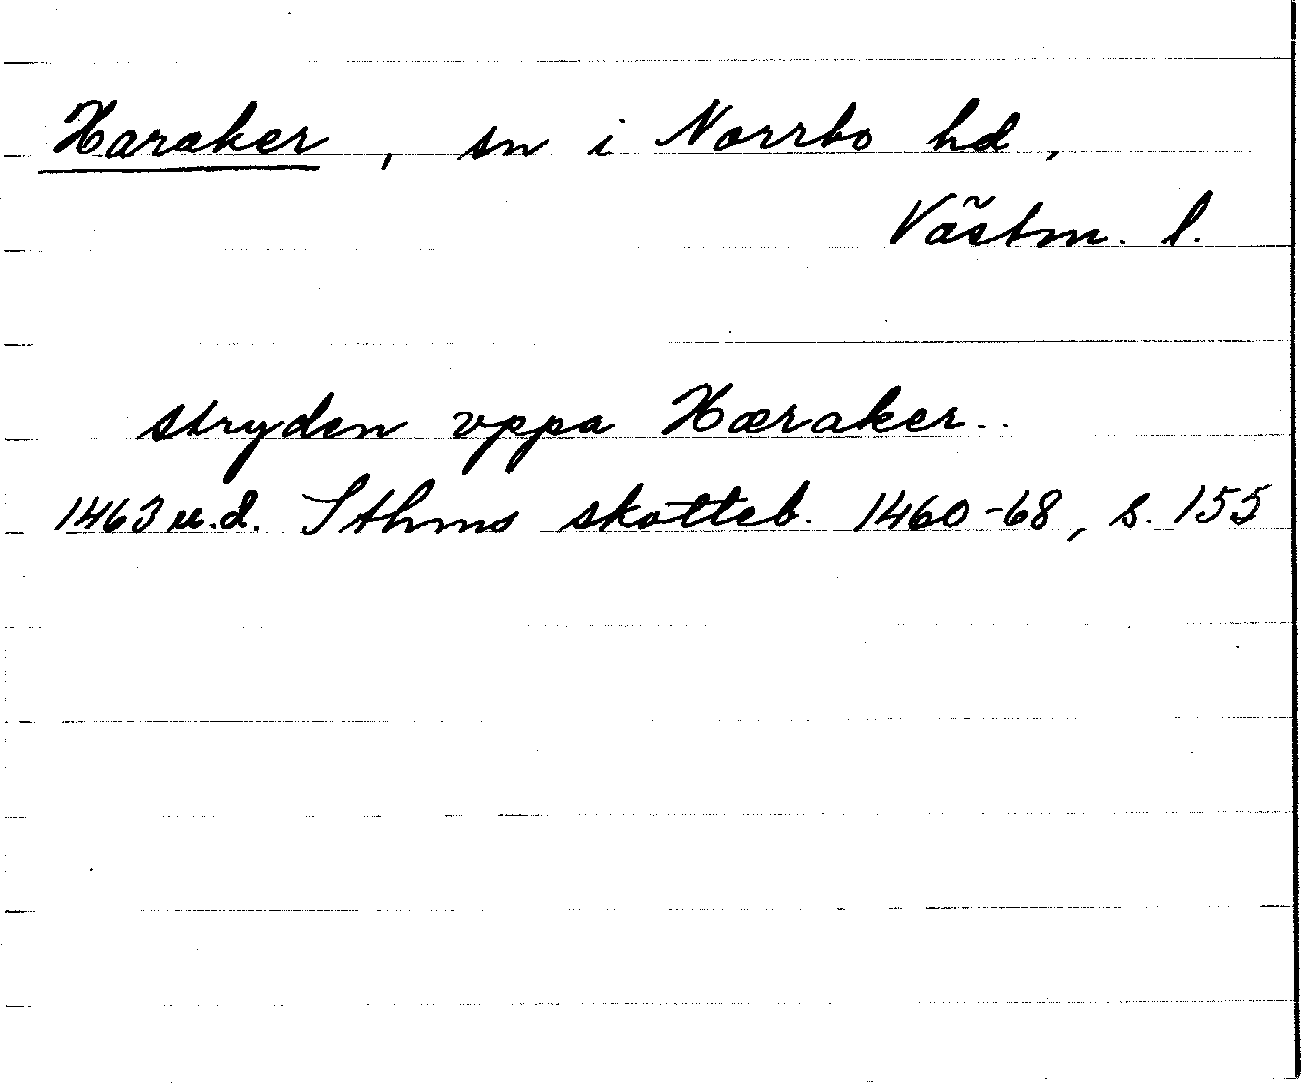 Haraker, sn i Norrbo hd,
Västm. l.
stryden vppa Hæraker..
1463 u.d. Sthms skotteb. 1460-68, s. 155